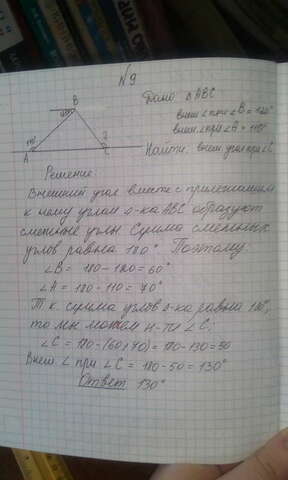 N9
Дано: ΔABC
внеш ∠ при ∠B = 120°
внеш. ∠ при ∠A = 110°
Найти: внеш угол при ∠C
B
A
C
?
Решение
Внешний угол вместе с прилежащим
к нему углом Δ-ка ABC образуют
смежные углы Сумма смежных
углов равна 180° Поэтому:
∠B = 180 - 120 = 60°
∠A = 180 - 110 = 70°
Т.к. сумма углов Δ-ка равна 180°,
то мы можем н-ти ∠C:
∠C = 180 - (60+70) = 180 - 130 = 50
Внеш ∠ при ∠C = 180 - 50 = 130°
Ответ 130°